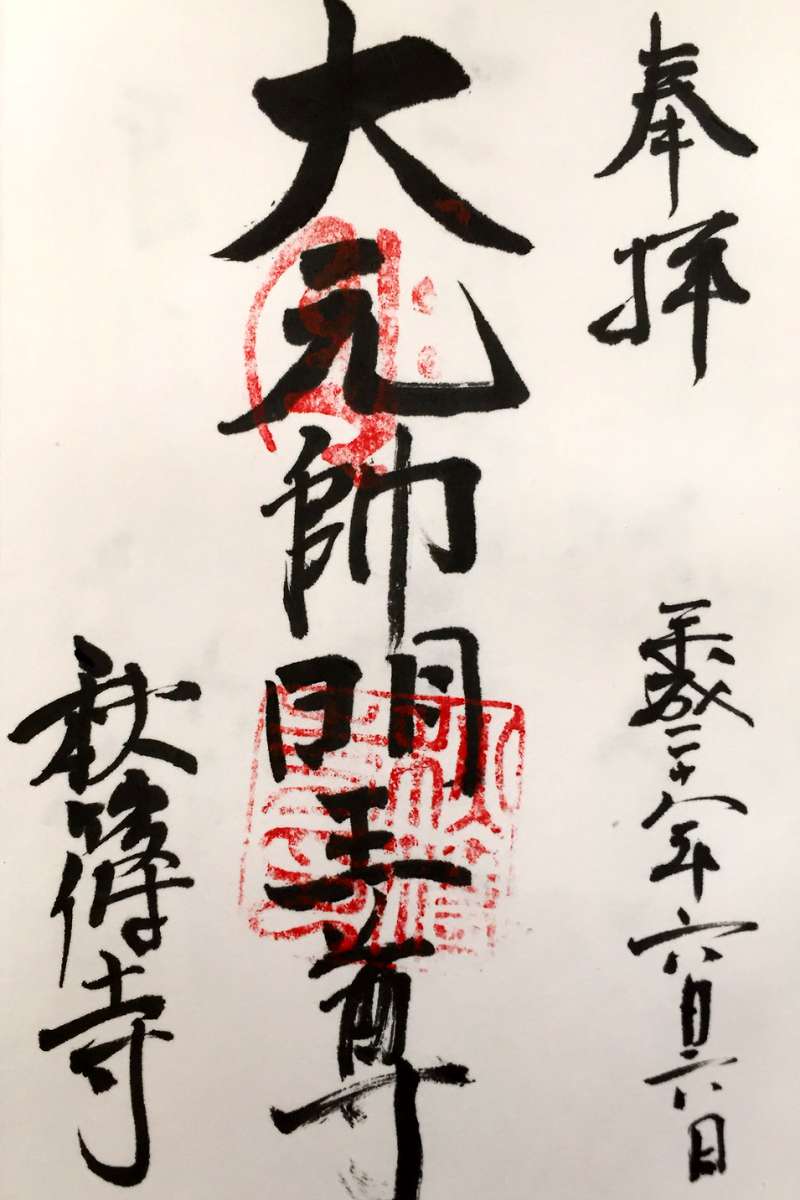 奉拝
平成二十八年六月六日
大元帥明王尊
秋篠寺